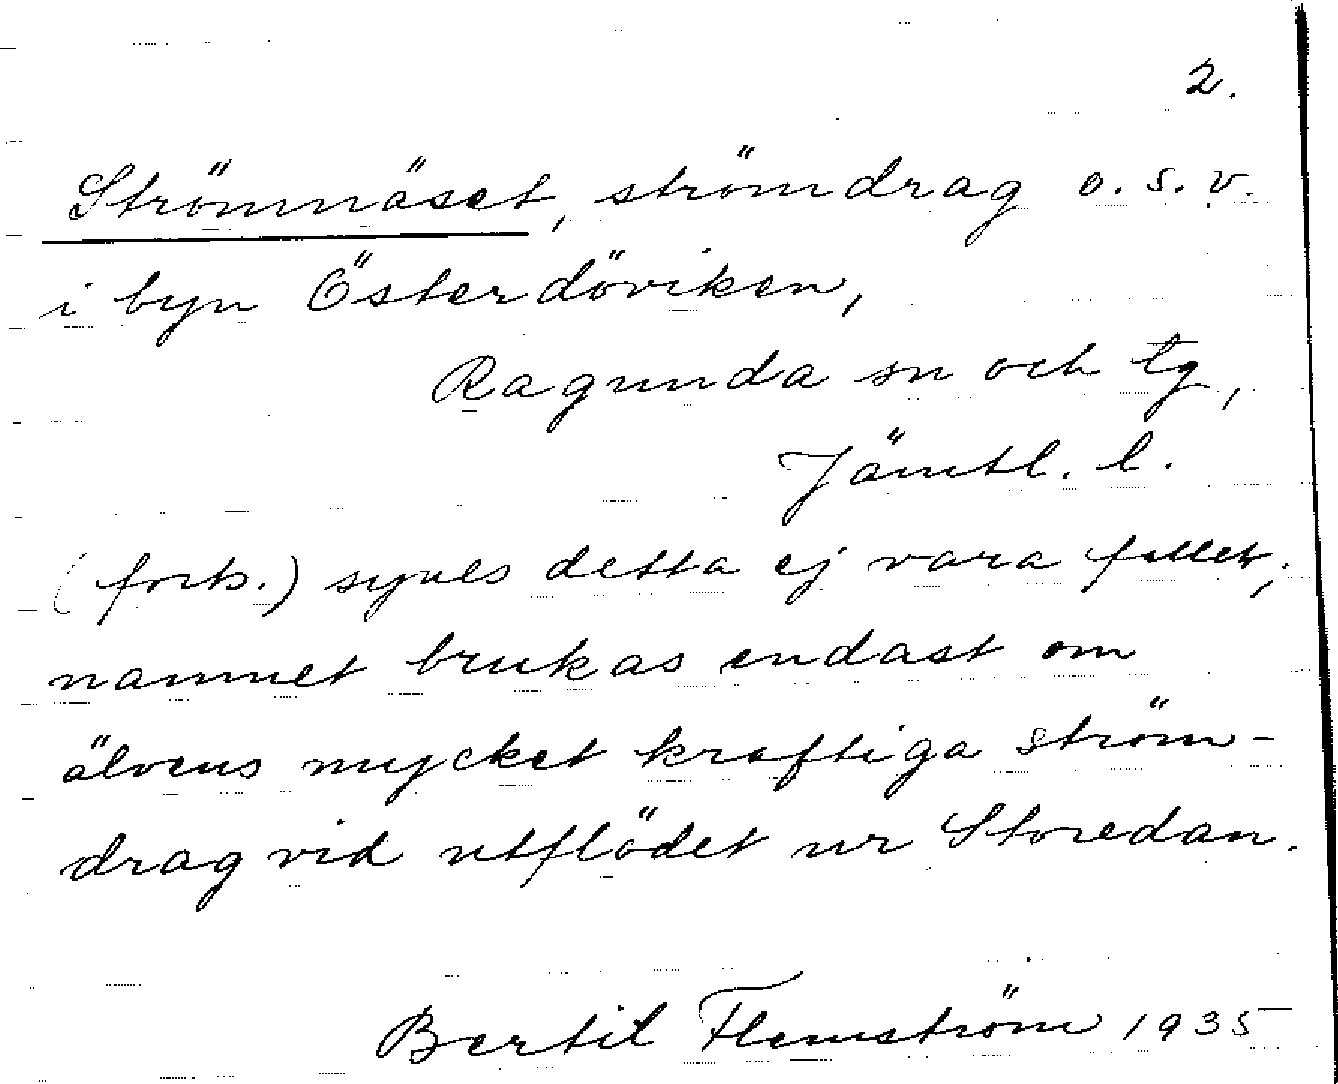 2.
Strömnäset, strömdrag o. s. v.
i byn Österdöviken,
Ragunda sn och tg,
Jämtl. l.
(forts.) synes detta ej vara fallet;
namnet brukas endast om
älvens mycket kraftiga ström-
drag vid utflödet ur Storedan.
Bertil Flemström 1935